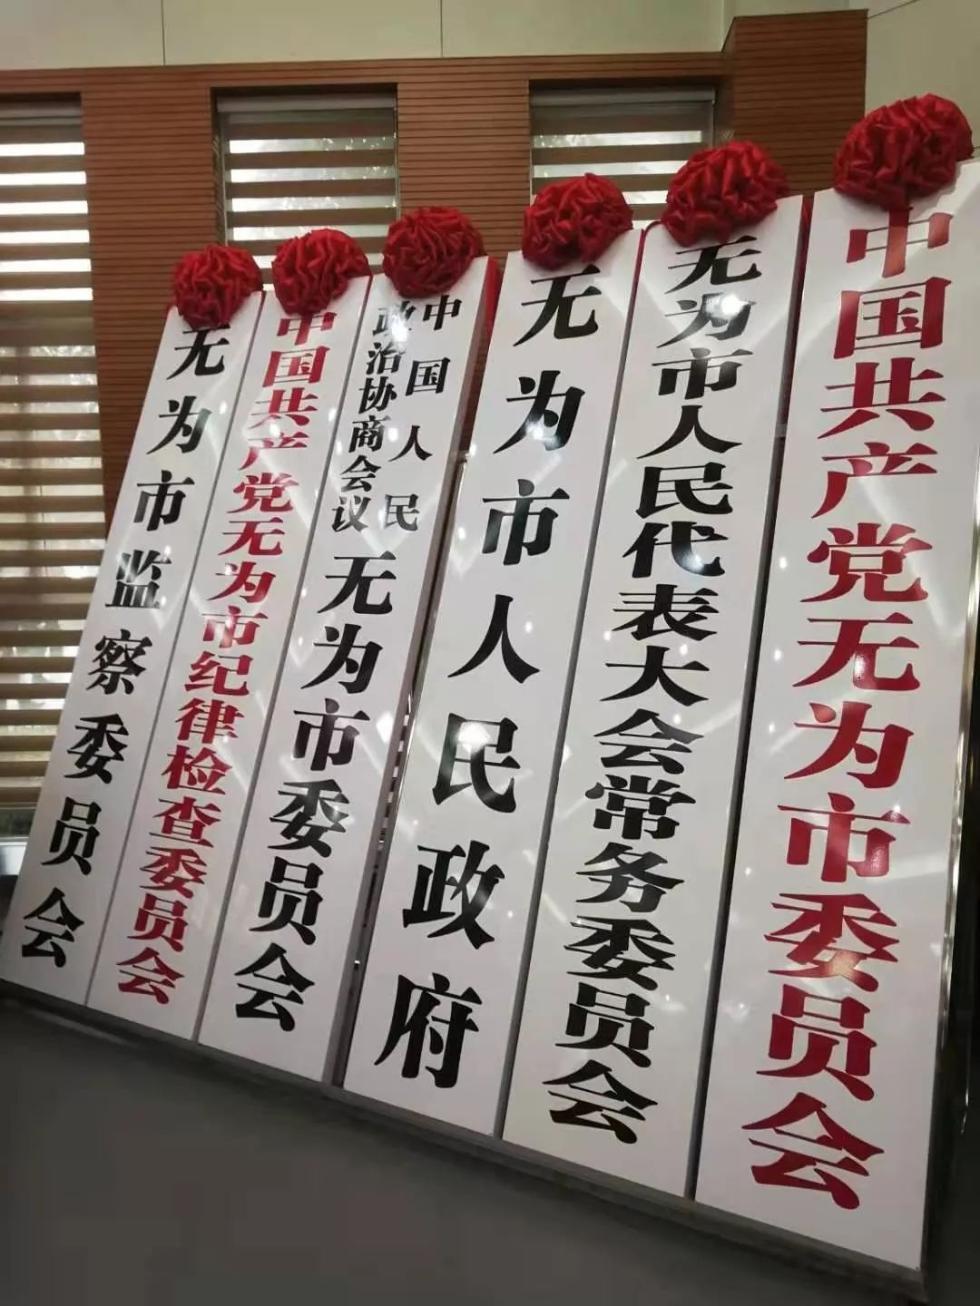 中国共产党无为市委员会
无为市人民代表大会常务委员会
无为市人民政府
中国人民
政治协商会议
无为市委员会
中国共产党无为市纪律检查委员会
无为市监察委员会